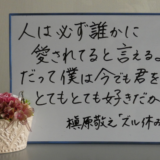 人は必ず誰かに
愛されてると言える
だって僕は今でも君を
とてもとても好きだか
槇原敬之"ズル休み